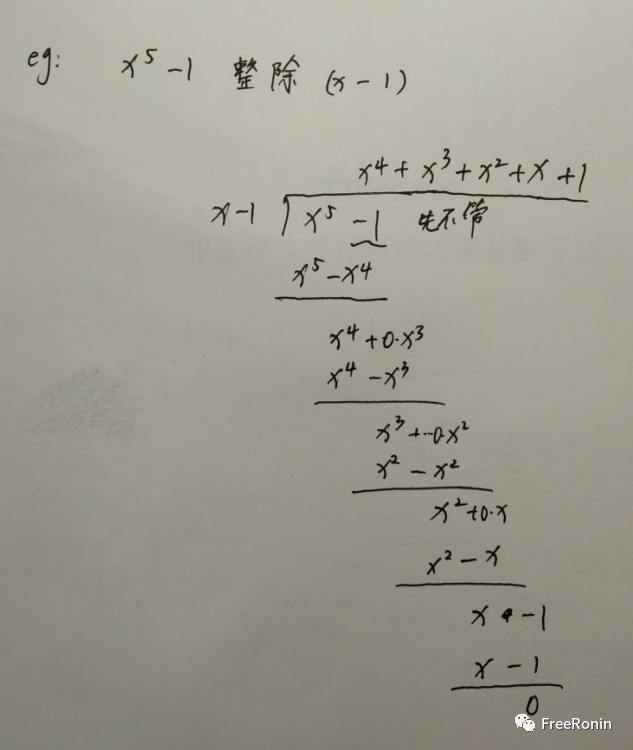 eg: x⁵ -1 整除 (x - 1)
x⁴ + x³ + x² + x + 1
x-1 x⁵ - 1 先不管
x⁵ - x⁴
x⁴ + 0·x³
x⁴ - x³
x³ + 0·x²
x² - x²
x² + 0·x
x² - x
x - 1
x - 1
0
FreeRonin